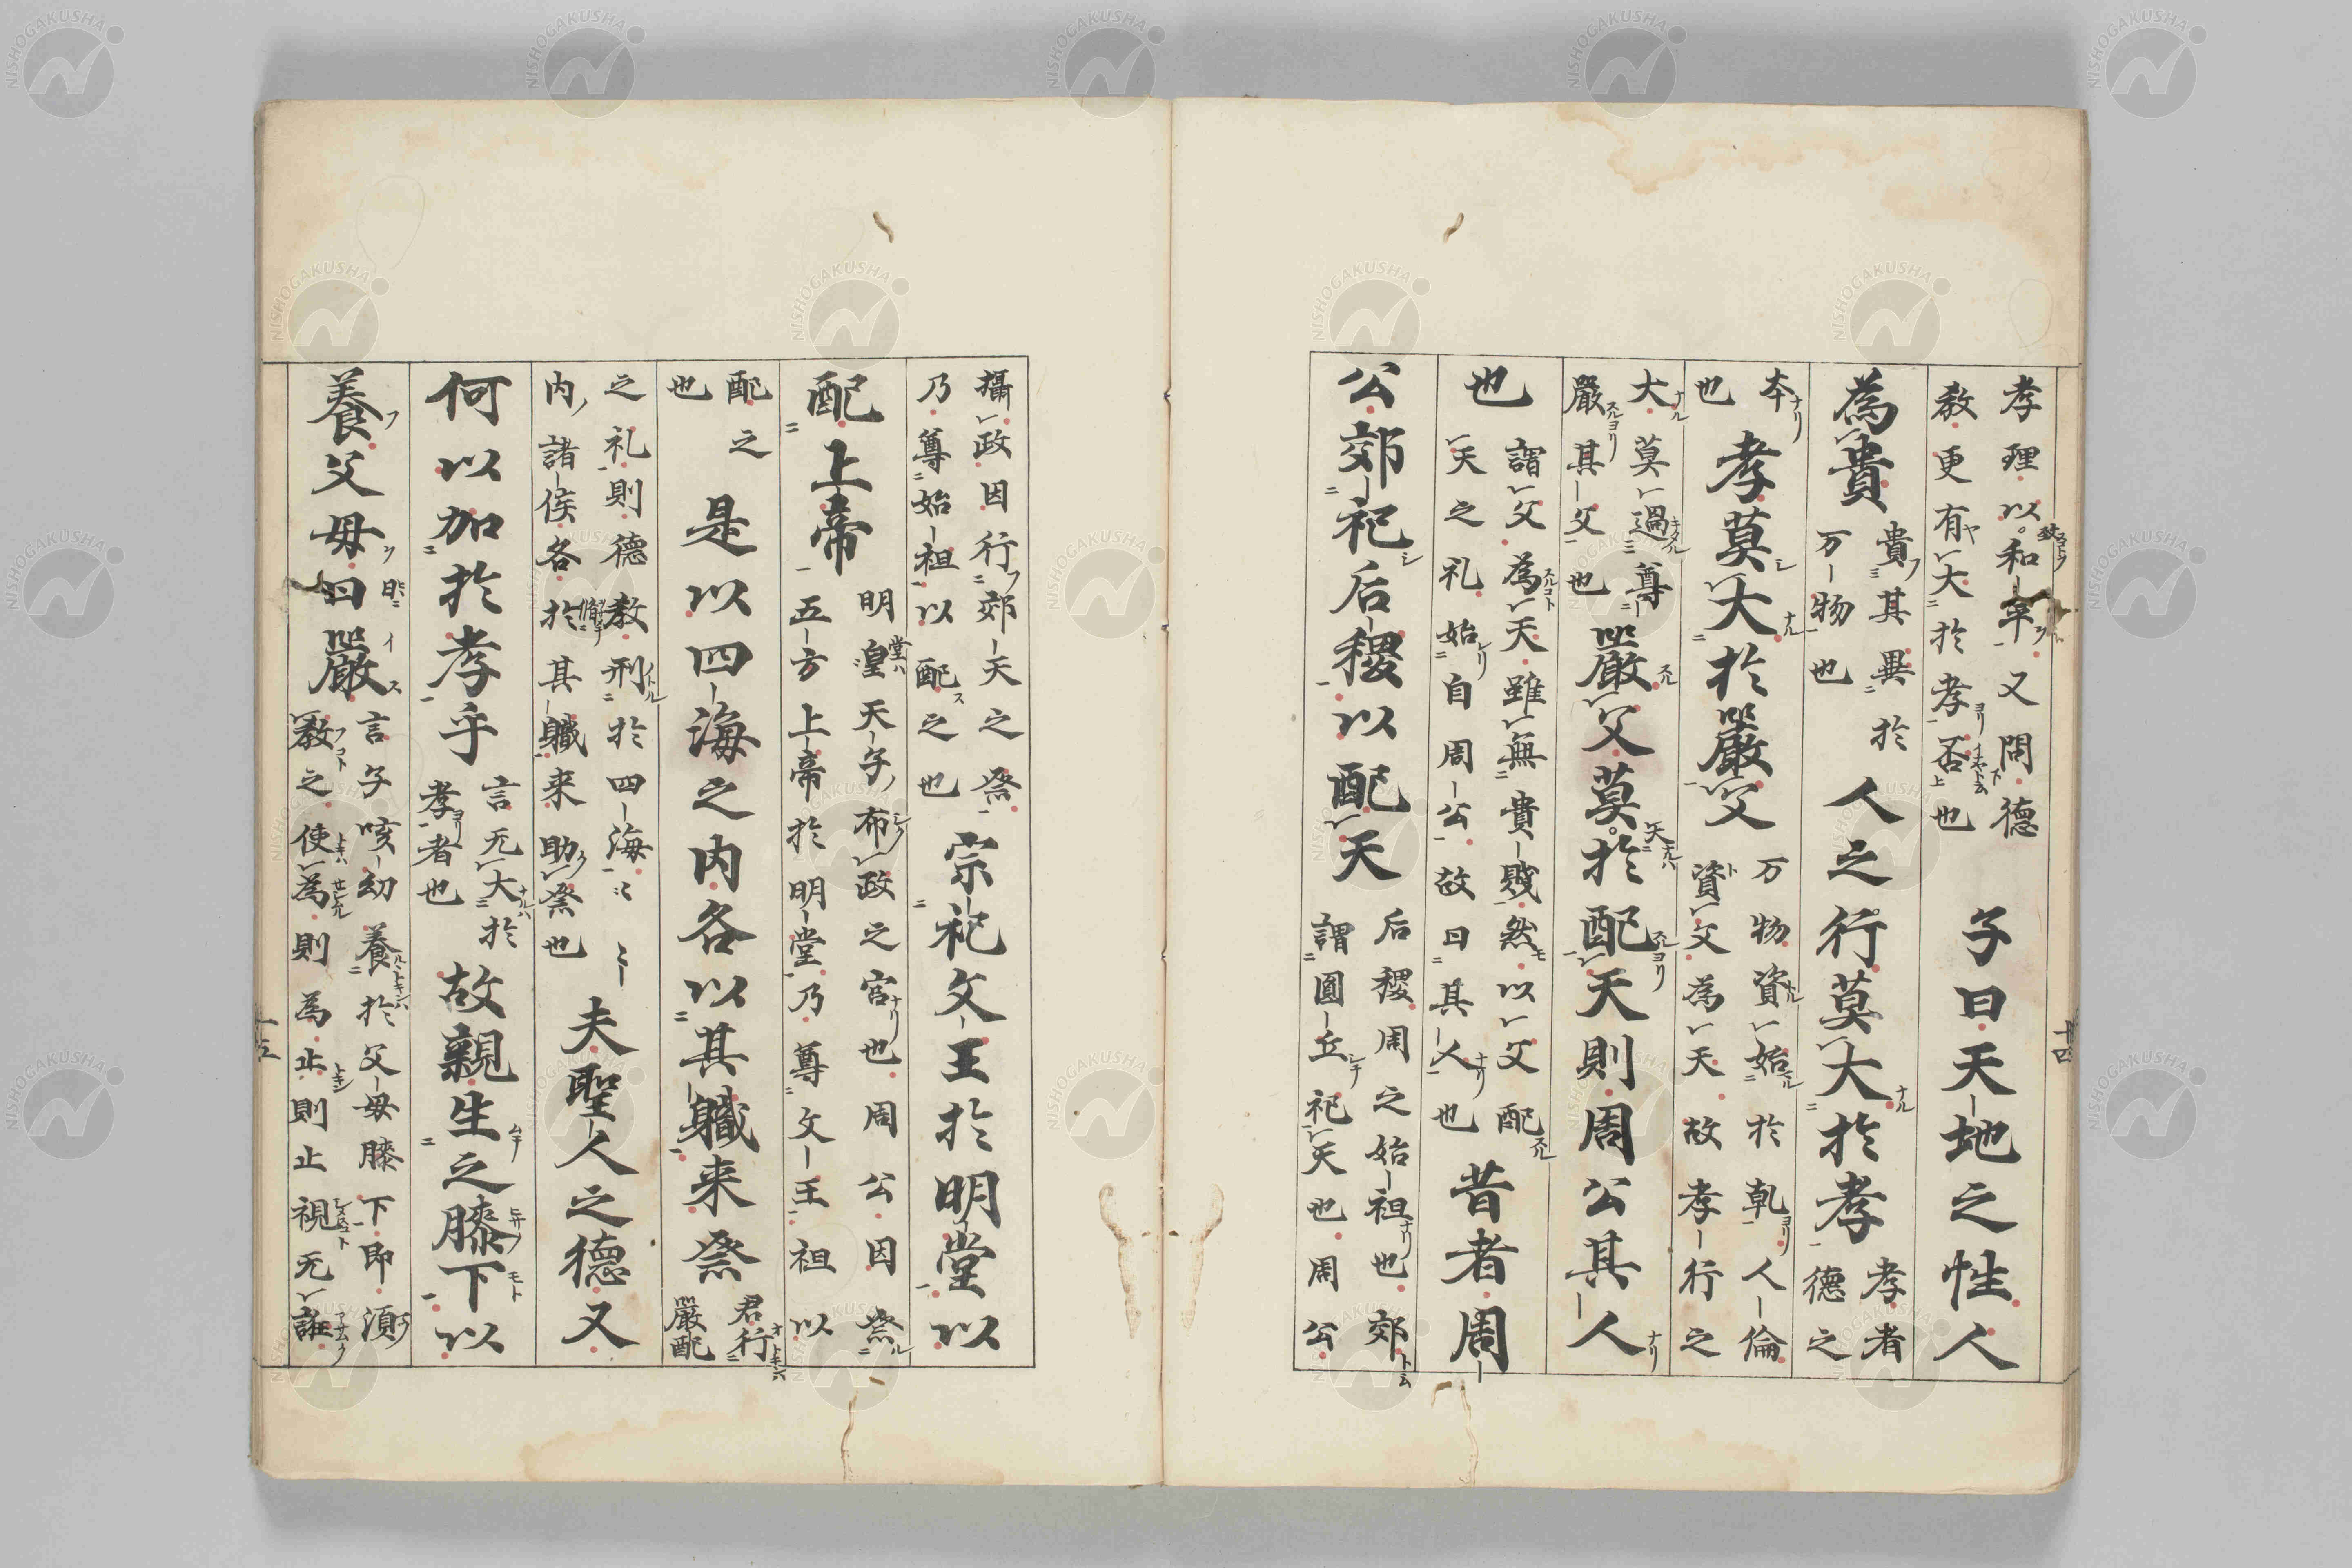 孝理以和平又問德
教更有大於孝否也
子曰天地之性人
為貴
貴其異於
万物也
人之行莫大於孝
孝者
德之
本
也
孝莫大於嚴父
万物資始於乹人倫
資父為天故孝行之
大莫過尊
嚴其父也
嚴父莫於配天則周公其人
也
謂父為天雖無貴賤然以父配
天之礼始自周公故曰其人也
昔者周
公郊祀后稷以配天
后稷周之始祖也郊
謂圓丘祀天也周公
攝政因行郊天之祭
乃尊始祖以配之也
宗祀文王於明堂以
配上帝
明堂天子布政之宮也周公因祭
五方上帝於明堂乃尊文王祖以
配之
也
是以四海之内各以其職来祭
君行
嚴配
之礼則德教刑於四海〻〻
内諸侯各脩其職来助祭也
夫聖人之德又
何以加於孝乎
言无大於
孝者也
故親生之膝下以
養父毋日嚴
言子咳幼養於父毋膝下即湏
教之使為則為止則止視无誑
十四
十五
NISHOGAKUSHA